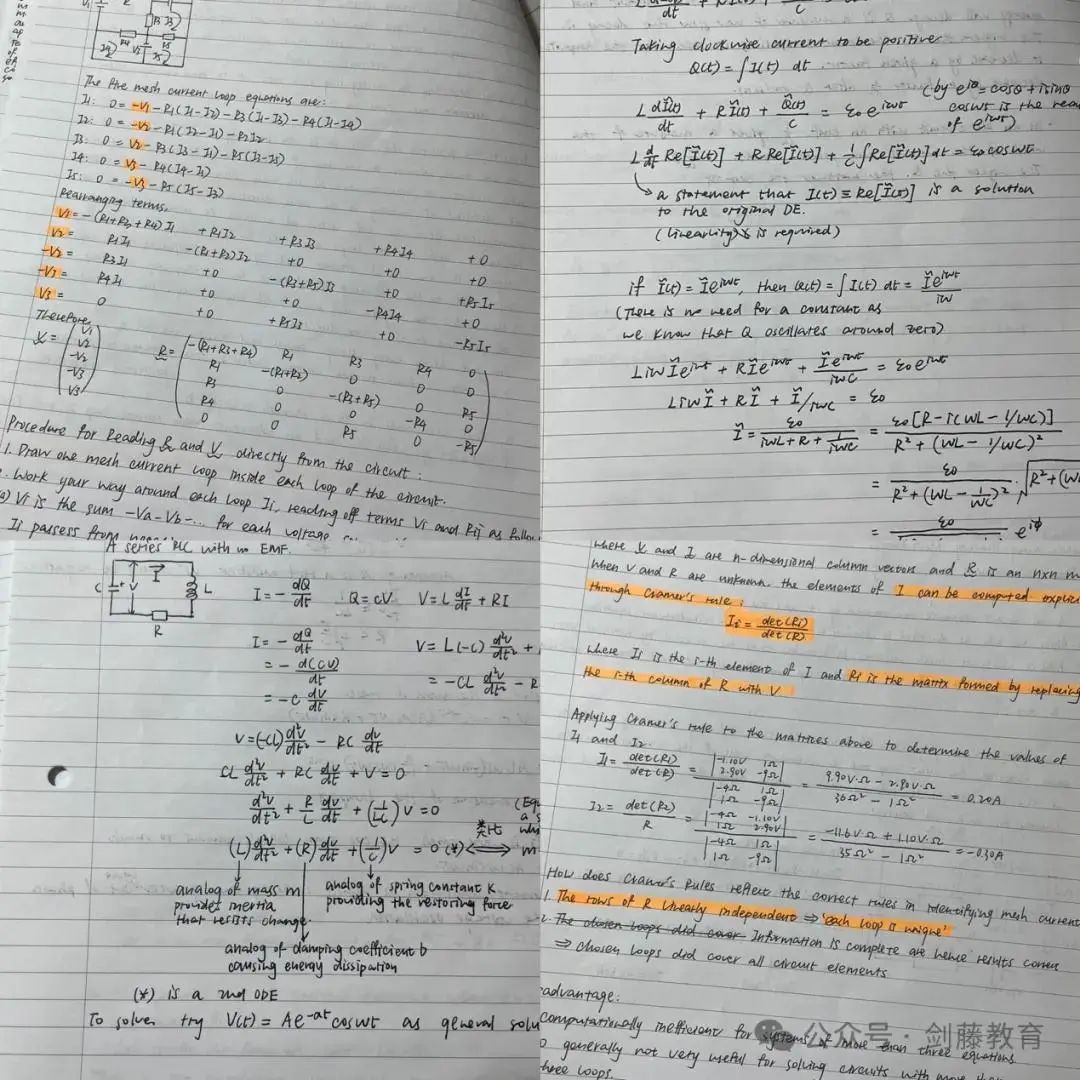 The five mesh current loop equations are:
I1: 0 = -V1 - R1(I1-I2) - R3(I1-I3) - R4(I1-I4)
I2: 0 = -V2 - R1(I2-I1) - R2I2
I3: 0 = V2 - R3(I3-I1) - R5(I3-I5)
I4: 0 = V3 - R4(I4-I1)
I5: 0 = -V3 - R5(I5-I3)
Rearranging terms,
V1 = -(R1+R3+R4)I1 +R1I2 +R3I3 +R4I4 +0
V2 = R1I1 -(R1+R2)I2 +0 +0 +0
-V2 = R3I1 +0 -(R3+R5)I3 +0 +R5I5
-V3 = R4I1 +0 +0 -R4I4 +0
V3 = 0 +0 +R5I3 +0 -R5I5
Therefore,
V = (V1 V2 -V2 -V3 V3) R =
-(R1+R3+R4) R1 R3 R4 0
R1 -(R1+R2) 0 0 0
R3 0 -(R3+R5) 0 R5
R4 0 0 -R4 0
0 0 R5 0 -R5
Procedure for Reading R and V directly from the circuit:
1. Draw one mesh current loop inside each loop of the circuit.
. Work your way around each loop Ii, reading off terms Vi and Rij as follow
a) Vi is the sum -Va-Vb-... for each voltage
Ii passes from
Taking clockwise current to be positive
Q(t) = ∫I(t) dt
(by e^iθ = cosθ + isinθ
L dĨ(t)/dt + RĨ(t) + Q̃(t)/C = ε0e^iwt
coswt is the rea
of e^iwt)
L d/dt Re[Ĩ(t)] + R Re[Ĩ(t)] + 1/C ∫Re[Ĩ(t)]dt = ε0 coswt
a statement that I(t) ≡ Re[Ĩ(t)] is a solution
to the original DE.
(linearity is required)
if Ĩ(t) = Ĩe^iwt, then Q(t) = ∫I(t) dt = Ĩe^iwt/iw
(There is no need for a constant as
we know that Q oscillates around zero)
LiwĨe^iwt + RĨe^iwt + Ĩe^iwt/iwC = ε0e^iwt
LiwĨ + RĨ + Ĩ/iwC = ε0
Ĩ = ε0/(iwL + R + 1/iwC) = ε0[R-i(wL-1/wC)]/(R²+(wL-1/wC)²)
= ε0/(R²+(wL-1/wC)²) · √R²+(w
= ε0 e^iφ
A series RLC with no EMF.
C + V - I L R
I = -dQ/dt Q = CV V = L dI/dt + RI
I = -dQ/dt V = L(-C) d²V/dt² +
= -d(CV)/dt = -CL d²V/dt² - R
= -C dV/dt
V = (-CL) d²V/dt² - RC dV/dt
CL d²V/dt² + RC dV/dt + V = 0
d²V/dt² + R/L dV/dt + (1/LC)V = 0
(Equ
a s
(L) d²V/dt² + (R) dV/dt + (1/C)V = 0 (*) 类比 ⟺ m
analog of mass m
provides inertia
that resists change.
analog of spring constant K
providing the restoring force
analog of damping coefficient b
causing energy dissipation
(*) is a 2nd ODE
To solve, try V(t) = Ae^-at coswt as general solu
where V and I are n-dimensional column vectors and R is an nxn m
when V and R are unknown. the elements of I can be computed explic
through Cramer's rule:
Ii = det(Ri)/det(R)
where Ii is the i-th element of I and Ri is the matrix formed by replacing
the i-th column of R with V
Applying Cramer's rule to the matrices above to determine the values of
I1 and I2.
I1 = det(R1)/det(R) = |-1.10V 1Ω 2.90V -9Ω| / |-4Ω 1Ω 1Ω -9Ω| = (9.90V·Ω - 2.90V·Ω)/(36Ω² - 1Ω²) = 0.20A
I2 = det(R2)/R = |-4Ω -1.10V 1Ω 2.90V| / |-4Ω 1Ω 1Ω -9Ω| = (-11.6V·Ω + 1.10V·Ω)/(35Ω² - 1Ω²) = -0.30A
How does Cramer's Rules reflect the correct rules in identifying mesh current
1. The rows of R linearly independent ⇒ 'each loop is unique'
2. The chosen loops did cover Information is complete are hence results correc
⇒ chosen loops did cover all circuit elements
advantage:
computationally inefficient for systems of more than three equations
generally not very useful for solving circuits with more than
three loops.
公众号·剑藤教育